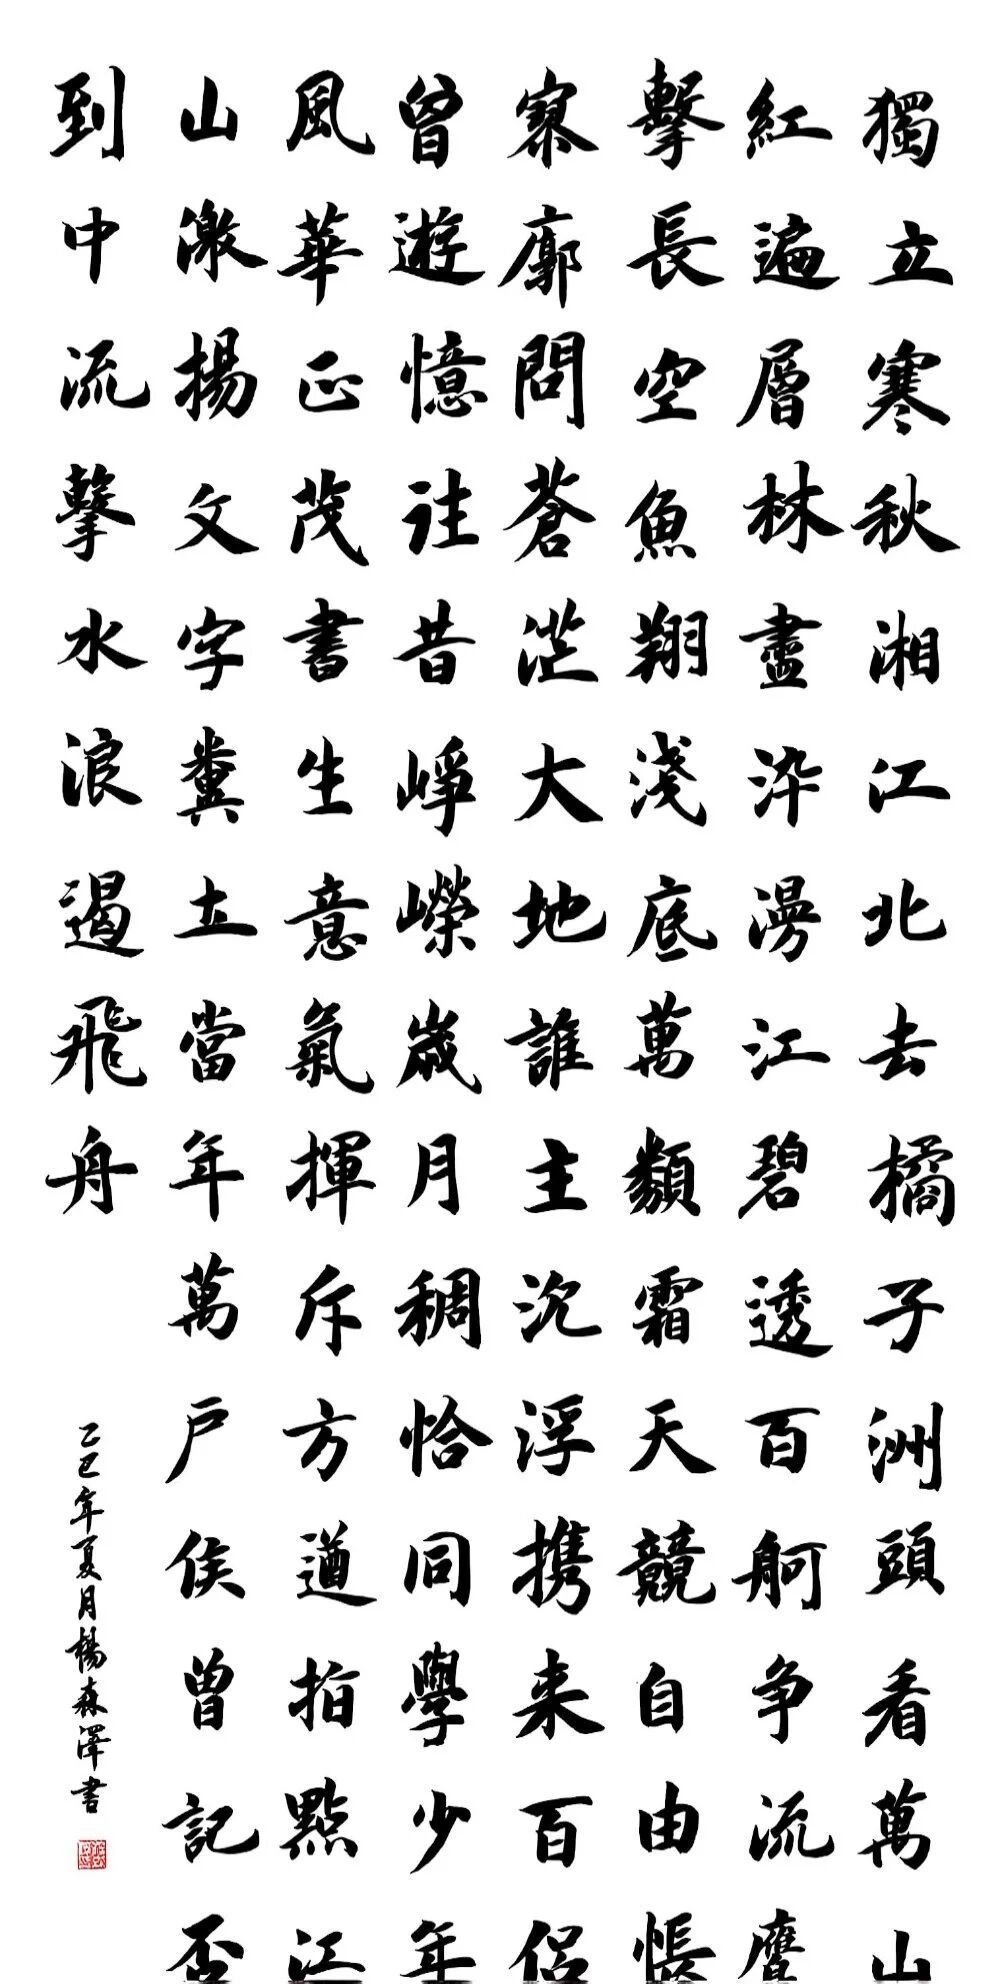 獨立寒秋湘江北去橘子洲頭看萬山
紅遍層林盡染漫江碧透百舸争流鷹
擊長空魚翔淺底萬類霜天競自由悵
寥廓問蒼茫大地誰主沉浮携来百侣
曾遊憶往昔崢嶸歲月稠恰同學少年
風華正茂書生意氣揮斥方遒指點江
山激揚文字糞土當年萬户侯曾記否
到中流擊水浪遏飛舟
乙巳年夏月楊森澤書